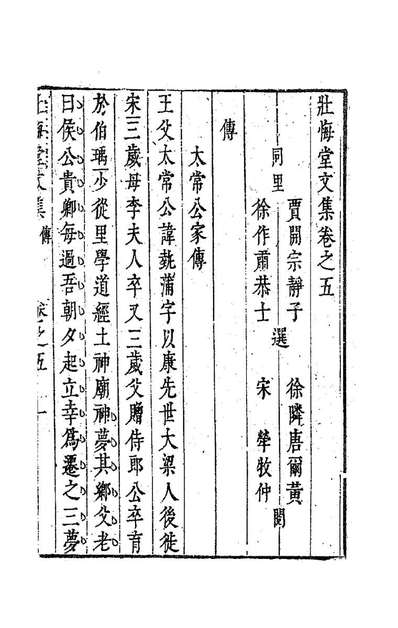 壯悔堂文集卷之五
同里
賈開宗靜子
徐作肅恭士
選
徐隣唐爾黃
宋犖牧仲
閱
傳
太常公家傳
王父太常公諱執蒲字以康先世大梁人後徙
宋三歲母李夫人卒又三歲父贈侍郎公卒育
於伯瑀少從里學道經土神廟神夢其鄉父老
曰侯公貴卿每過吾朝夕起立幸為遷之三夢
壯悔堂文集 傳 卷之五 一